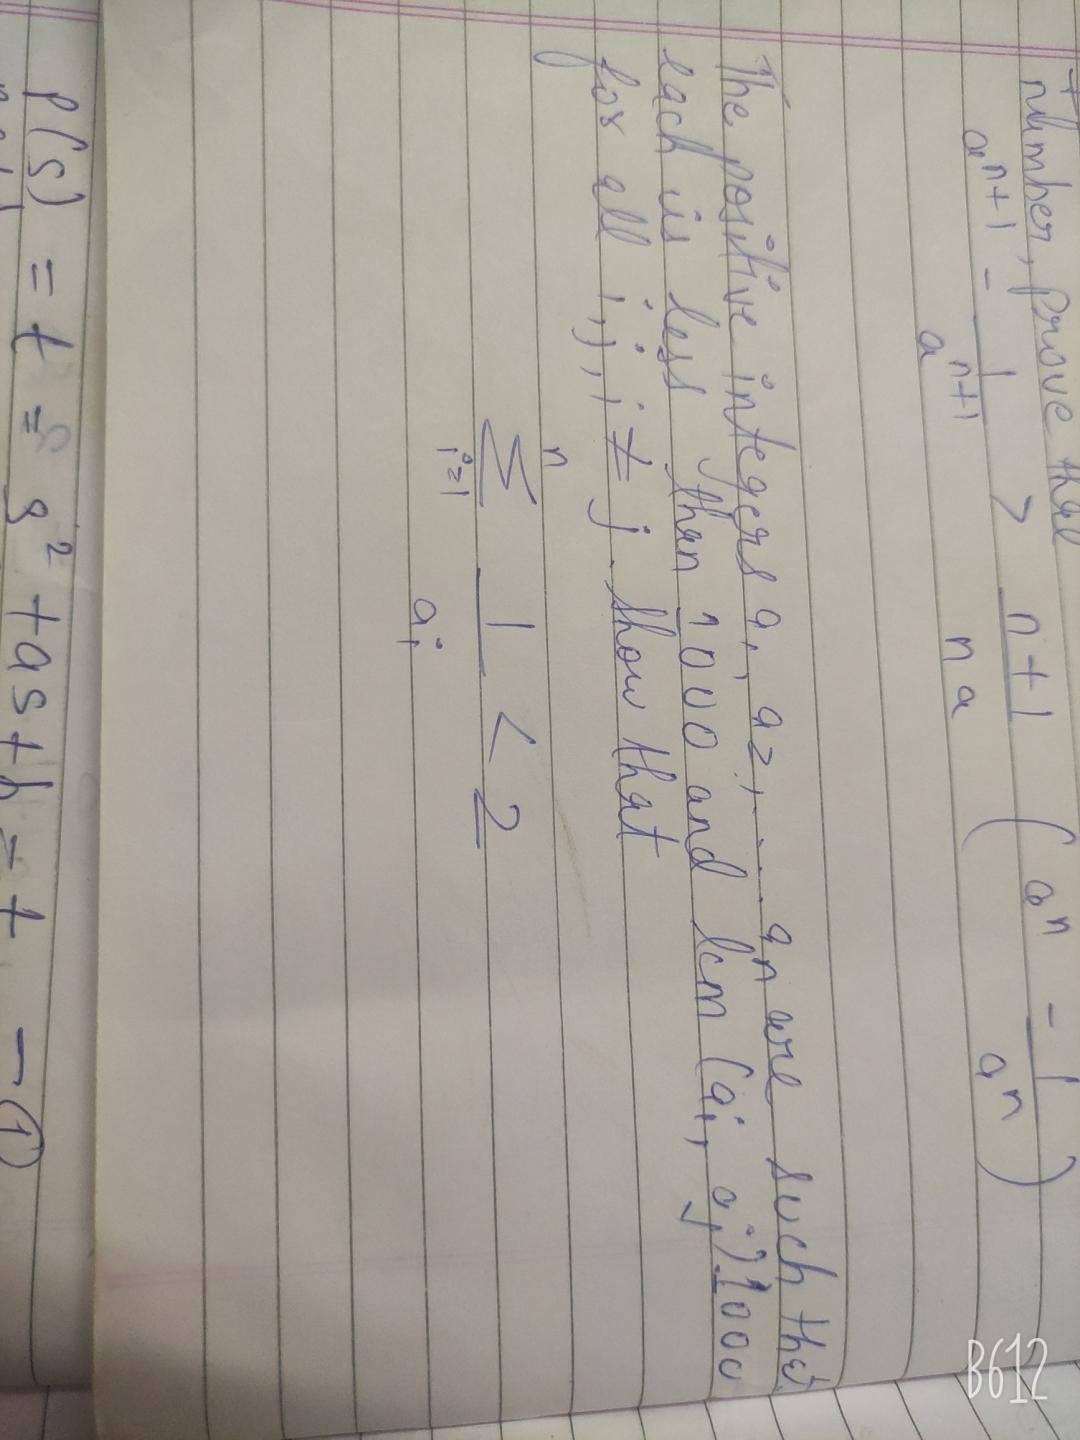 number, prove that
a^{n+1} - \frac{1}{a^{n+1}} > \frac{n+1}{na} ( a^n - \frac{1}{a^n} )
The positive integers a_1, a_2, .... a_n are such that
each is less than 1000 and lcm (a_i, a_j) 1000
for all i, j, i ≠ j. show that
\sum_{i=1}^{n} \frac{1}{a_i} < 2
p(s) = t = s^2 + as + b = t - ①
B612